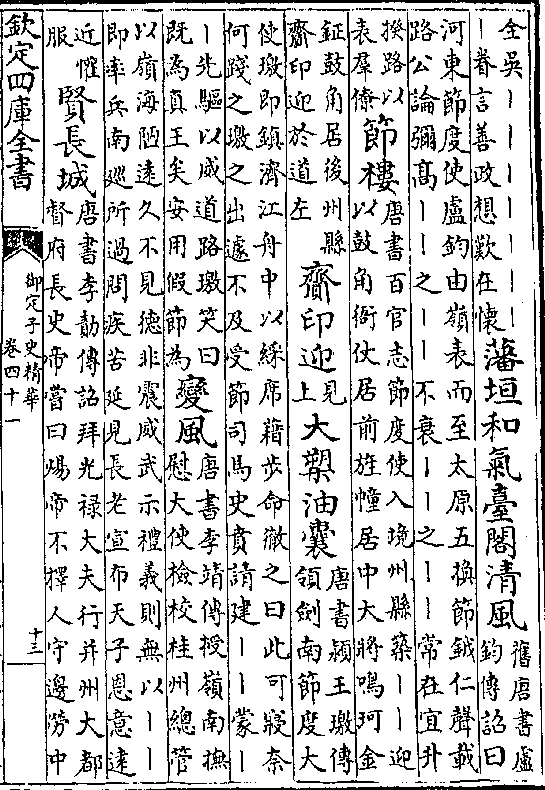 全吳｜｜｜｜｜｜｜藩垣和氣臺閣清風舊唐書盧鈞傳詔曰
｜眷言善政想歎在懷
河東節度使盧鈞由嶺表而至太原五換節鉞仁聲載
路公論彌高｜｜之｜｜不衰｜｜之｜｜常在宜升
揆路以表羣僚
節樓唐書百官志節度使入境州縣築｜｜迎
以鼓角衙仗居前旌幢居中大將鳴珂金
鉦鼓角居後州縣齎印迎於道左
齎印迎見上
大槊油囊唐書潁王璬傳領劍南節度大
使璬即鎮濟江舟中以綵席藉步命徹之曰此可寢奈
何踐之璬之出遽不及受節司馬史賁請建｜｜蒙｜
｜先驅以威道路璬笑曰既為真王矣安用假節為
變風唐書李靖傳授嶺南撫慰大使檢校桂州總管
以嶺海陋遠久不見德非震威武示禮義則無以｜｜
即率兵南巡所過問疾苦延見長老宣布天子恩意遠
近懽服
賢長城唐書李勣傳詔拜光祿大夫行并州大都
督府長史帝嘗曰煬帝不擇人守邊勞中
欽定四庫全書
御定子史精華
卷四十一
十三